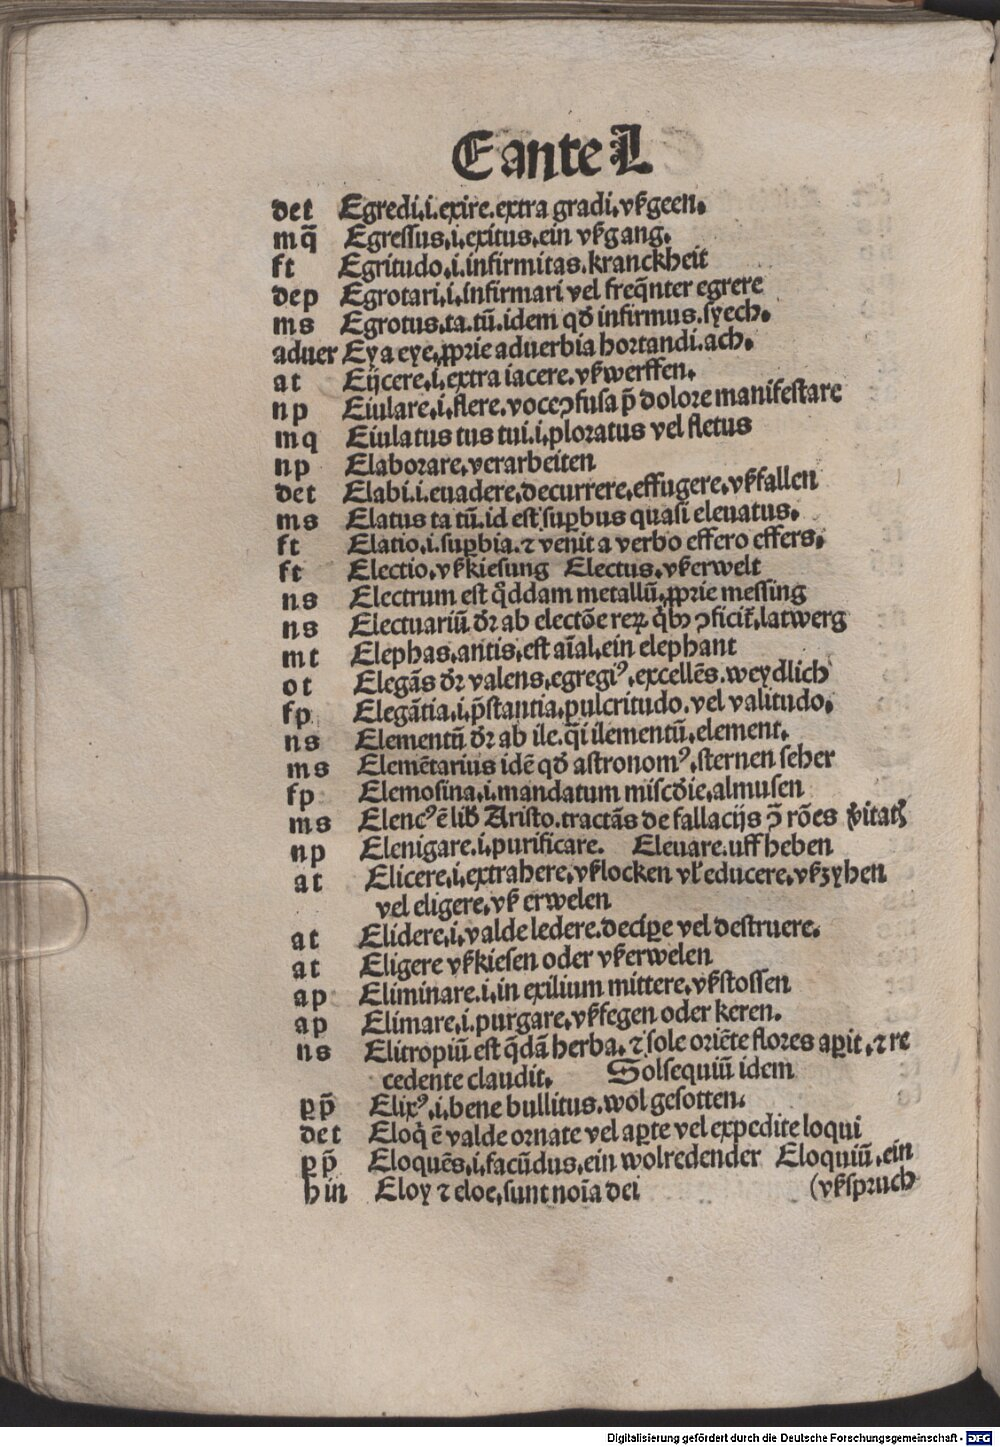 E ante L
det Egredi.i.exire.extra gradi.vßgeen.
mq̃ Egressus.i.exitus.ein vßgang.
ft Egritudo.i.infirmitas.kranckheit
dep Egrotari.i.infirmari vel freq̃nter egrere
ms Egrotus.ta.tũ.idem qđ infirmus.syech.
aduer Eya eye.ꝓprie aduerbia hortandi.ach.
at Eijcere.i.extra iacere.vßwerffen.
np Eiulare.i.flere.voce ꝯfusa p̃ dolore manifestare
mq Eiulatus tus tui.i.ploratus vel fletus
np Elaborare.verarbeiten
det Elabi.i.euadere.decurrere.effugere.vßfallen
ms Elatus ta tũ.id est suꝑbus quasi eleuatus.
ft Elatio.i.suꝑbia.⁊ venit a verbo effero effers.
ft Electio.vßkiesung Electus.vßerwelt
ns Electrum est q̇ddam metallũ.ꝓprie messing
ns Electuariũ dr̃ ab electõe reꝝ q̇bꝫ ꝯficit̃.latwerg
mt Elephas.antis.est aĩal.ein elephant
ot Elegãs dr̃ valens.egregiꝰ.excellẽs.weydlich
fp Elegãtia.i.p̃stantia.pulcritudo.vel valitudo.
ns Elementũ dr̃ ab ile.q̃i ilementũ.element.
ms Elemẽtarius idẽ qđ astronomꝰ.sternen seher
fp Elemosina.i.mandatum misc̃die.almusen
ms Elencꝰ ẽ lib̃ Aristo.tractãs de fallacijs ꝯ̃ rões v̓itatꝭ
np Elenigare.i.purificare. Eleuare.uff heben
at Elicere.i.extrahere.vßlocken vl̃ educere.vßzyhen
vel eligere.vß erwelen
at Elidere.i.valde ledere.deciꝑe vel destruere.
at Eligere vßkiesen oder vßerwelen
ap Eliminare.i.in exilium mittere.vßstossen
ap Elimare.i.purgare.vßfegen oder keren.
ns Elitropiũ est q̃dã herba.⁊ sole oriẽte flores aꝑit.⁊ re
cedente claudit. Solsequiũ idem
ꝑp̃ Elixꝰ.i.bene bullitus.wol gesotten.
det Eloq̇ ẽ valde ornate vel aꝑte vel expedite loqui
ꝑp̃ Eloquẽs.i.facũdus.ein wolredender Eloquiũ.ein
hin Eloy ⁊ eloe.sunt noĩa dei (vßspruch
Digitalisierung gefördert durch die Deutsche Forschungsgemeinschaft - DFG